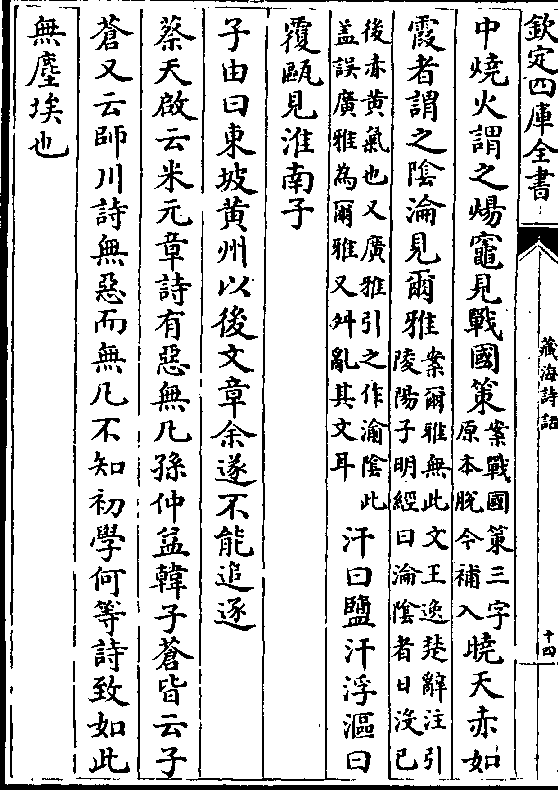 欽定四庫全書
藏海詩話
十四
中燒火謂之煬竈見戰國策案戰國策三字原本脫今補入曉天赤如
霞者謂之陰淪見爾雅案爾雅無此文王逸楚辭注引陵陽子明經曰淪陰者日沒已
後赤黄氣也又廣雅引之作淪陰此盖誤廣雅為爾雅又舛亂其文耳汗曰鹽汗浮漚曰
覆甌見淮南子
子由曰東坡黄州以後文章余遂不能追逐
蔡天啟云米元章詩有惡無凡孫仲益韓子蒼皆云子
蒼又云師川詩無惡而無凡不知初學何等詩致如此
無塵埃也